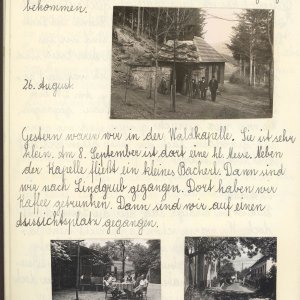 bekommen.
26. August.
Gestern waren wir in der Waldkapelle. Sie ist sehr
klein. Am 8. September ist dort eine hl. Messe. Neben
der Kapelle fließt ein kleines Bacherl. Dann sind
wir nach Lindgrub gegangen. Dort haben wir
Kaffee getrunken. Dann sind wir auf einen
Aussichtsplatz gegangen.